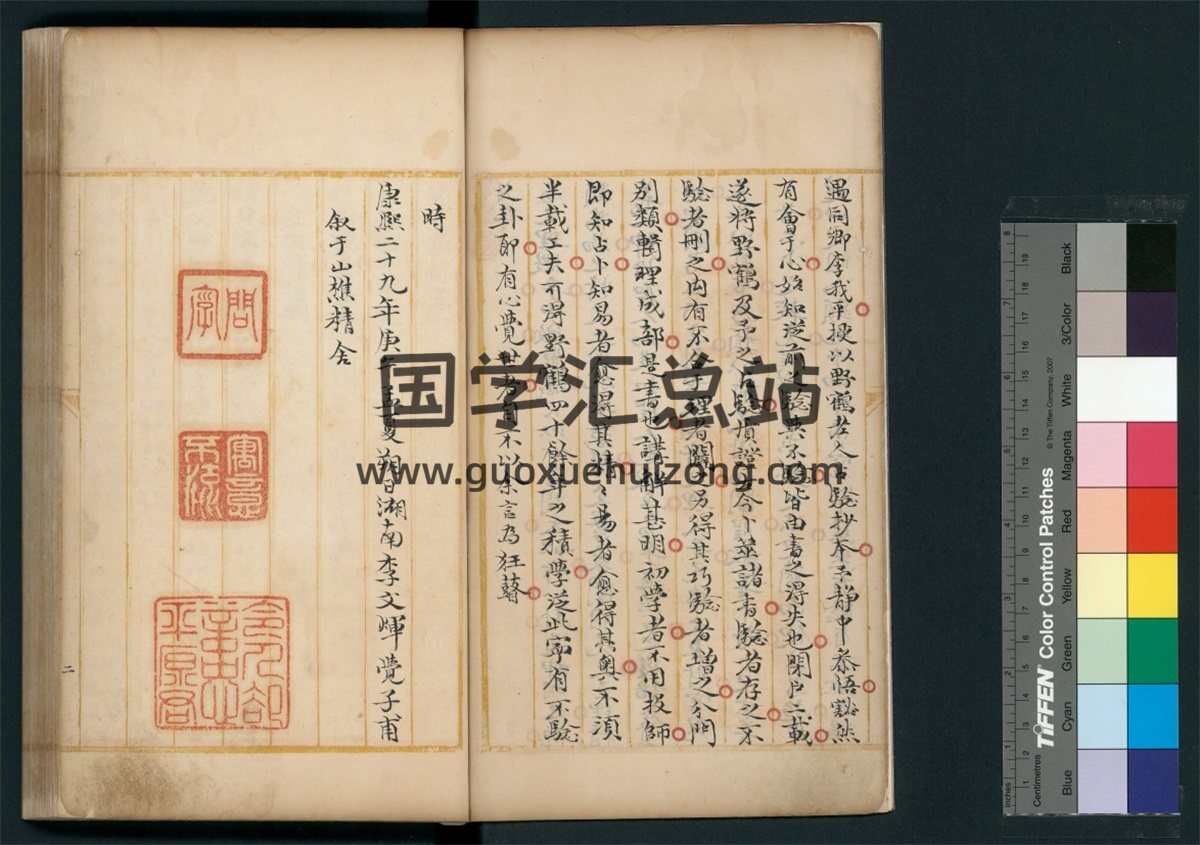 遇同鄉李我平授以野鶴老人占驗抄本予靜中叅悟豁然
有會于心始知從前之驗與不驗皆由書之得失也閉戶二載
遂將野鶴及予之占驗
今卜筮諸書驗者存之不
驗者刪之內有不合于理者闢之另得其巧驗者增之分門
別類輯理成部是書也講解甚明初學者不用投師
即知占卜知易者愈得其精
易者愈得其奧不須
半載工夫可得野鶴四十餘年之積學從此寧有不驗
之卦耶有心覺世者自不以余言為狂瞽
時
康熙二十九年庚午孟夏朔日湖南李文煇覺子甫
叙于山樵精舍
国学汇总站
www.guoxuehuizong.com
Inches
Centimetres
TIFFEN Color Control Patches
© The Tiffen Company, 2007
Blue
Cyan
Green
Yellow
Red
Magenta
White
3/Color
Black